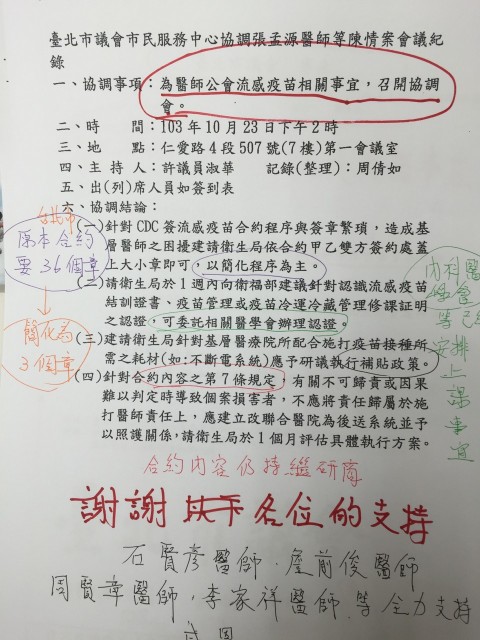 臺北市議會市民服務中心協調張孟源醫師等陳情案會議紀
錄
一、協調事項：為醫師公會流感疫苗相關事宜，召開協調
會。
二、時　　間：103年10月23日下午2時
三、地　　點：仁愛路4段507號(7樓)第一會議室
四、主 持 人：許議員淑華　　記錄(整理)：周倩如
五、出(列)席人員如簽到表
六、協調結論：
(一)針對CDC簽流感疫苗合約程序與簽章繁瑣，造成基
層醫師之困擾建請衛生局依合約甲乙雙方簽約處蓋
上大小章即可，以簡化程序為主。
(二)請衛生局於1週內向衛福部建議針對認識流感疫苗
結訓證書、疫苗管理或疫苗冷運冷藏管理修課証明
之認證，可委託相關醫學會辦理認證。
(三)建請衛生局針對基層醫療院所配合施打疫苗接種所
需之耗材(如:不斷電系統)應予研議執行補貼政策。
(四)針對合約內容之第7條規定，有關不可歸責或因果
難以判定時導致個案損害者，不應將責任歸屬於施
打醫師責任上，應建立改聯合醫院為後送系統並予
以照護關係，請衛生局於1個月評估具體執行方案。
台北市
原本合約
要36個章
簡化為
3個章
內科醫
學會
等已經
安排上
課事宜
合約內容仍持繼研商
謝謝以下各位的支持
石賢彥醫師、詹前俊醫師
周賢章醫師、李家祥醫師等全力支持